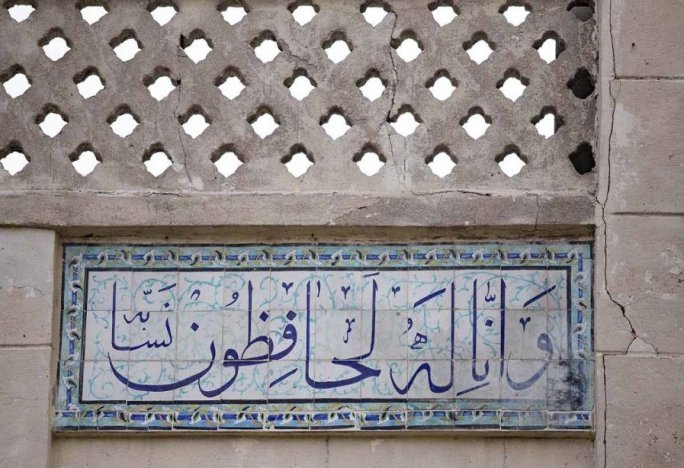 وَ انّا لَهُ لَحافِظُونْ